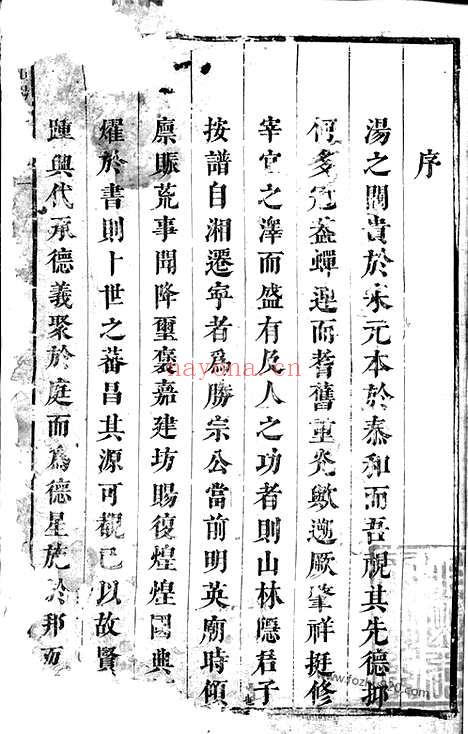 序
湯之閥貴於宋元本於泰和而吾覘其先德抑
何多冠蓋蟬連而耆舊重光歟遡厥肇祥挺修
宰官之澤而盛有及人之功者則山林隱君子
按譜自湘遷寧者為勝宗公當前明英廟時傾
廪賑荒事聞降璽褒嘉建坊賜復煌煌國典
燿於書則十世之蕃昌其源可觀已以故賢
踵興代承德義聚於庭而為德星施於邦而
nayona.cn